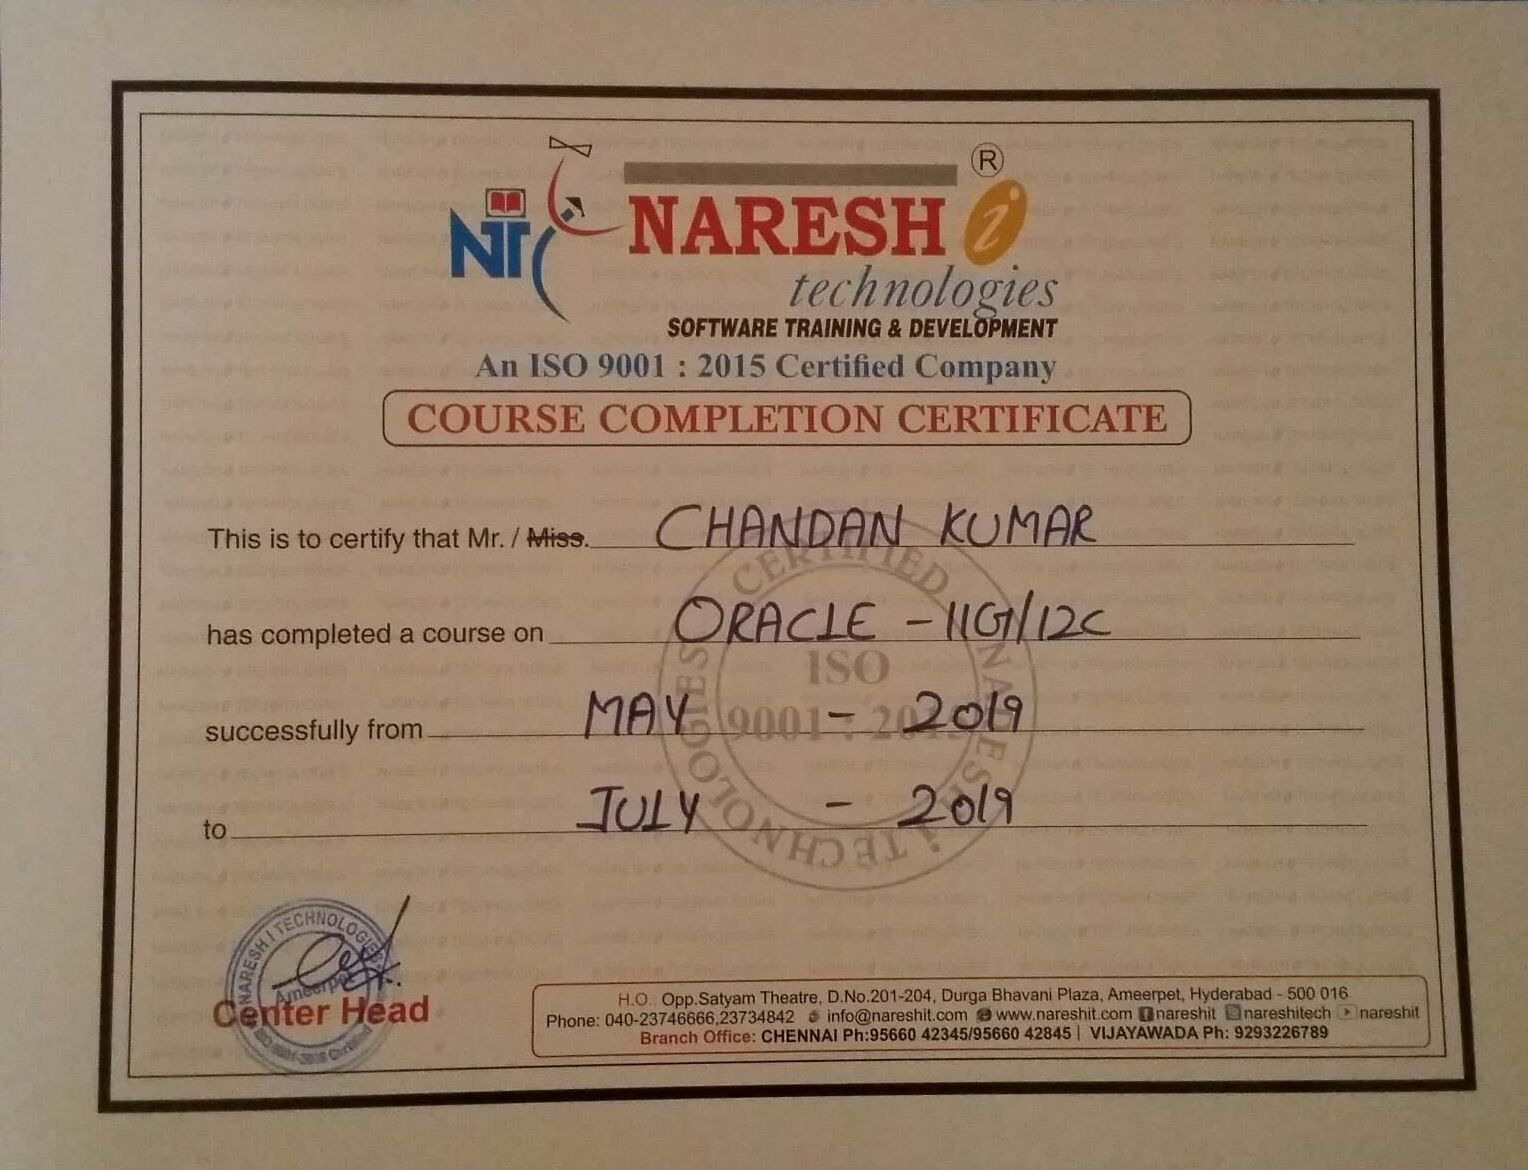 NT
®
NARESH i
technologies
SOFTWARE TRAINING & DEVELOPMENT
An ISO 9001 : 2015 Certified Company
COURSE COMPLETION CERTIFICATE
This is to certify that Mr. / Miss. CHANDAN KUMAR
has completed a course on ORACLE - 11G/12C
successfully from MAY - 2019
to JULY - 2019
CERTIFIED NARESH i TECHNOLOGIES
ISO
9001 : 2015
NARESH I TECHNOLOGIES
Ameerpet
Center Head
H.O. Opp.Satyam Theatre, D.No.201-204, Durga Bhavani Plaza, Ameerpet, Hyderabad - 500 016
Phone: 040-23746666,23734842 info@nareshit.com www.nareshit.com nareshit nareshitech nareshit
Branch Office: CHENNAI Ph:95660 42345/95660 42845 | VIJAYAWADA Ph: 9293226789